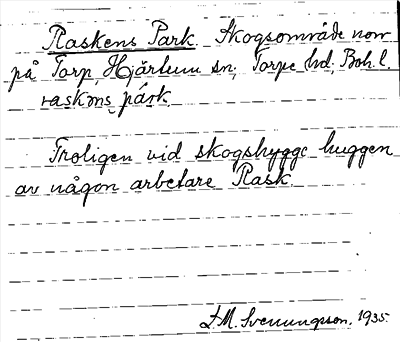 Raskens Park. Skogsområde norr
på Torp Hjärtum sn, Torpe hd, Boh. l.
raskəns park.
Troligen vid skogshygge huggen
av någon arbetare Rask.
S.M. Svenungsson. 1935.